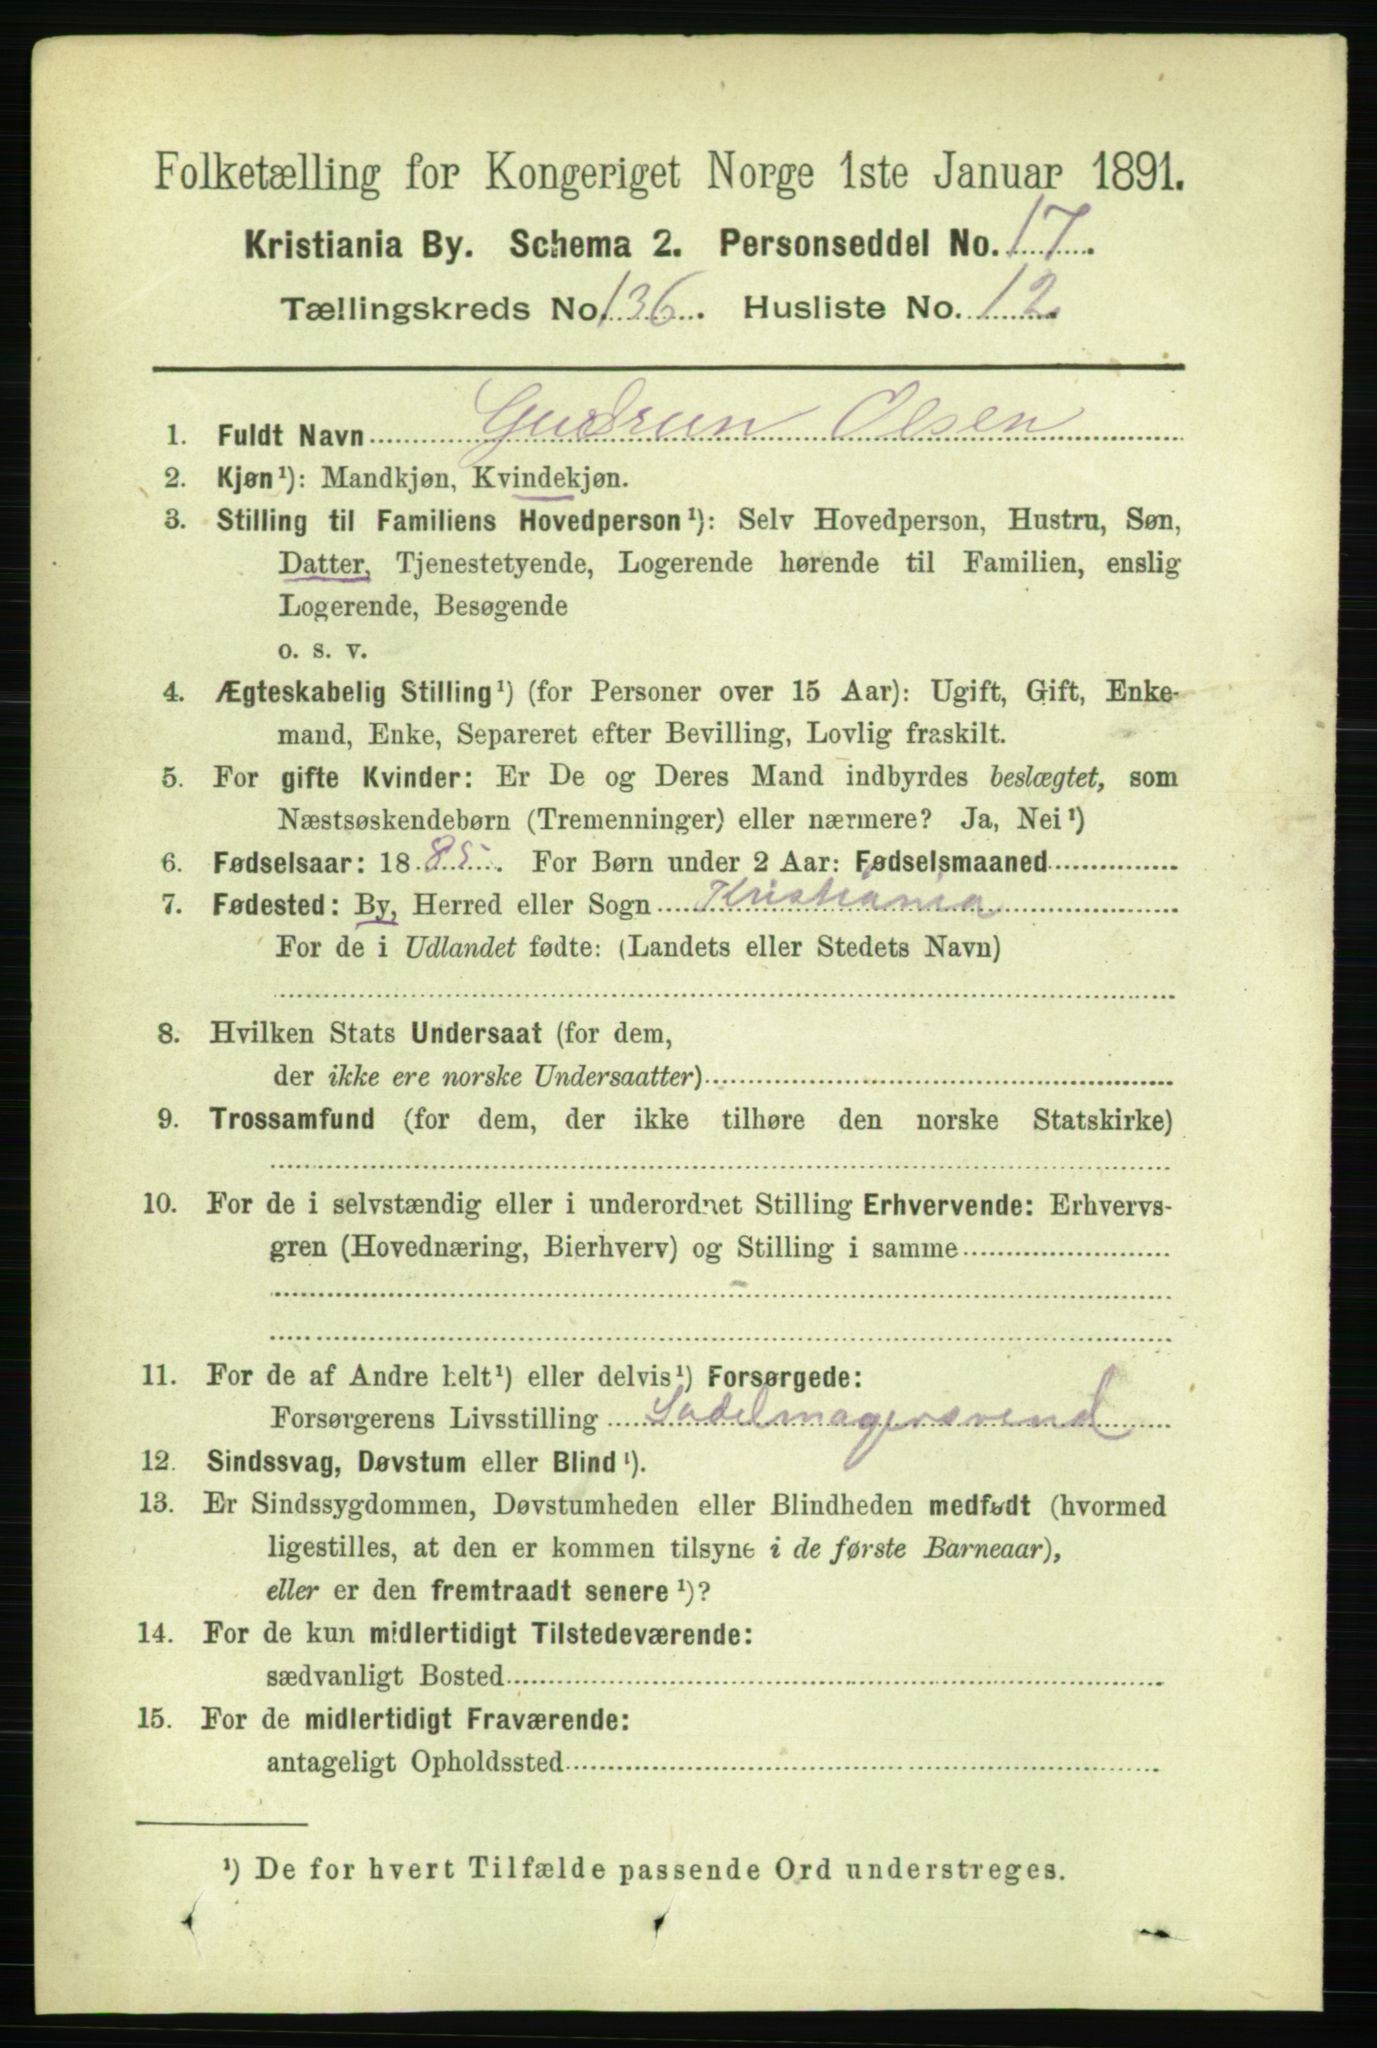 Folketælling for Kongeriget Norge 1ste Januar 1891.
Kristiania By. Schema 2. Personseddel No. 17.
Tællingskreds No. 136. Husliste No. 12.
1. Fuldt Navn Gudrun Olsen
2. Kjøn¹): Mandkjøn, Kvindekjøn.
3. Stilling til Familiens Hovedperson¹): Selv Hovedperson, Hustru, Søn,
Datter, Tjenestetyende, Logerende hørende til Familien, enslig
Logerende, Besøgende
o. s. v.
4. Ægteskabelig Stilling¹) (for Personer over 15 Aar): Ugift, Gift, Enke-
mand, Enke, Separeret efter Bevilling, Lovlig fraskilt.
5. For gifte Kvinder: Er De og Deres Mand indbyrdes beslægtet, som
Næstsøskendebørn (Tremenninger) eller nærmere? Ja, Nei¹)
6. Fødselsaar: 1885. For Børn under 2 Aar: Fødselsmaaned
7. Fødested: By, Herred eller Sogn Kristiania
For de i Udlandet fødte: (Landets eller Stedets Navn)
8. Hvilken Stats Undersaat (for dem,
der ikke ere norske Undersaatter)
9. Trossamfund (for dem, der ikke tilhøre den norske Statskirke)
10. For de i selvstændig eller i underordnet Stilling Erhvervende: Erhvervs-
gren (Hovednæring, Bierhverv) og Stilling i samme
11. For de af Andre helt¹) eller delvis¹) Forsørgede:
Forsørgerens Livsstilling Sadelmagersvend
12. Sindssvag, Døvstum eller Blind¹).
13. Er Sindssygdommen, Døvstumheden eller Blindheden medfødt (hvormed
ligestilles, at den er kommen tilsyne i de første Barneaar),
eller er den fremtraadt senere¹)?
14. For de kun midlertidigt Tilstedeværende:
sædvanligt Bosted
15. For de midlertidigt Fraværende:
antageligt Opholdssted
¹) De for hvert Tilfælde passende Ord understreges.